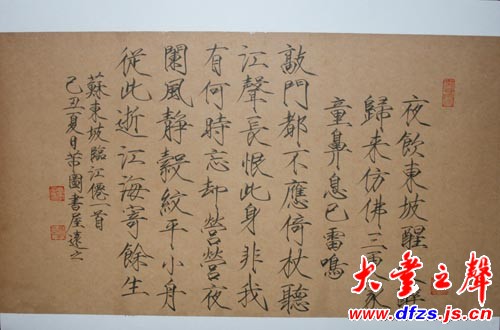 夜飲東坡醒醉
歸来仿佛三更家
童鼻息已雷鳴
敲門都不應倚杖聽
江聲長恨此身非我
有何時忘却營營夜
闌風靜縠紋平小舟
從此逝江海寄餘生
蘇東坡臨江僊一首
己丑夏日園書屋遠之
大豐之聲
www.dfzs.js.cn